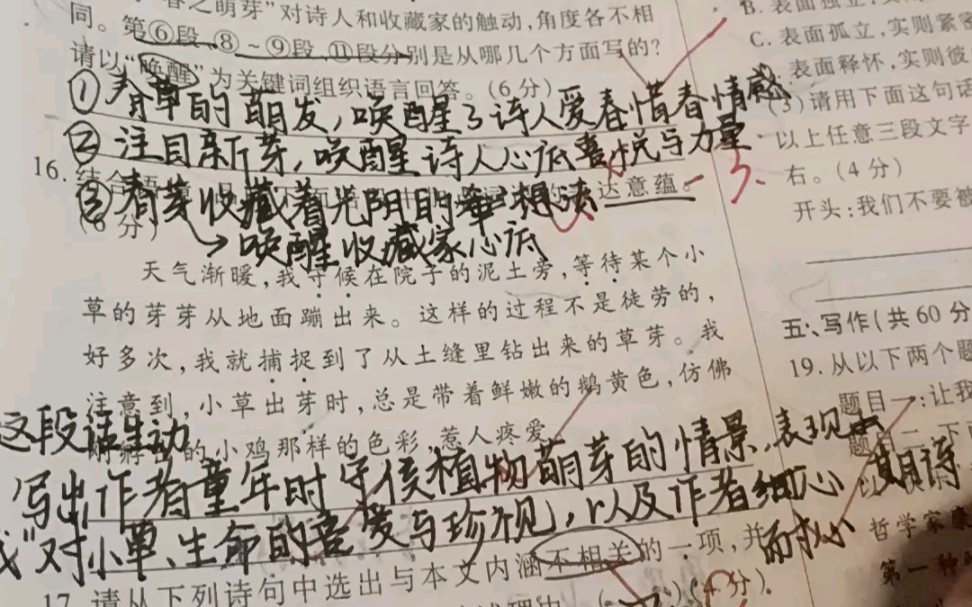 春之萌芽”对诗人和收藏家的触动,角度各不相
同。第⑥段、⑧~⑨段、⑪段分别是从哪几个方面写的?
请以“唤醒”为关键词组织语言回答。(6分)
①春草的萌发,唤醒了诗人爱春惜春情感
②注目新芽,唤醒诗人心底喜悦与力量
16.结合
达意蕴。
-3.
③春芽收藏着光阴的
(6分)
→唤醒收藏家心底
天气渐暖,我守候在院子的泥土旁,等待某个小
草的芽芽从地面蹦出来。这样的过程不是徒劳的,
好多次,我就捕捉到了从土缝里钻出来的草芽。我
注意到,小草出芽时,总是带着鲜嫩的鹅黄色,仿佛
的小鸡那样的色彩,惹人疼爱。
这段话生动
写出作者童年时守候植物萌芽的情景,表现出
”对小草、生命的喜爱与珍视,以及作者细心
耐心
17.请从下列诗句中选出与本文内涵不相关的一项,并
(4分)
B.表面独立,实则
C.表面孤立,实则紧密
表面释怀,实则彼
(3)请用下面这句话
以上任意三段文字
右。(4分)
开头:我们不要被
五、写作(共60分
19.从以下两个题
题目一:让我
题目二
哲学家
第一种